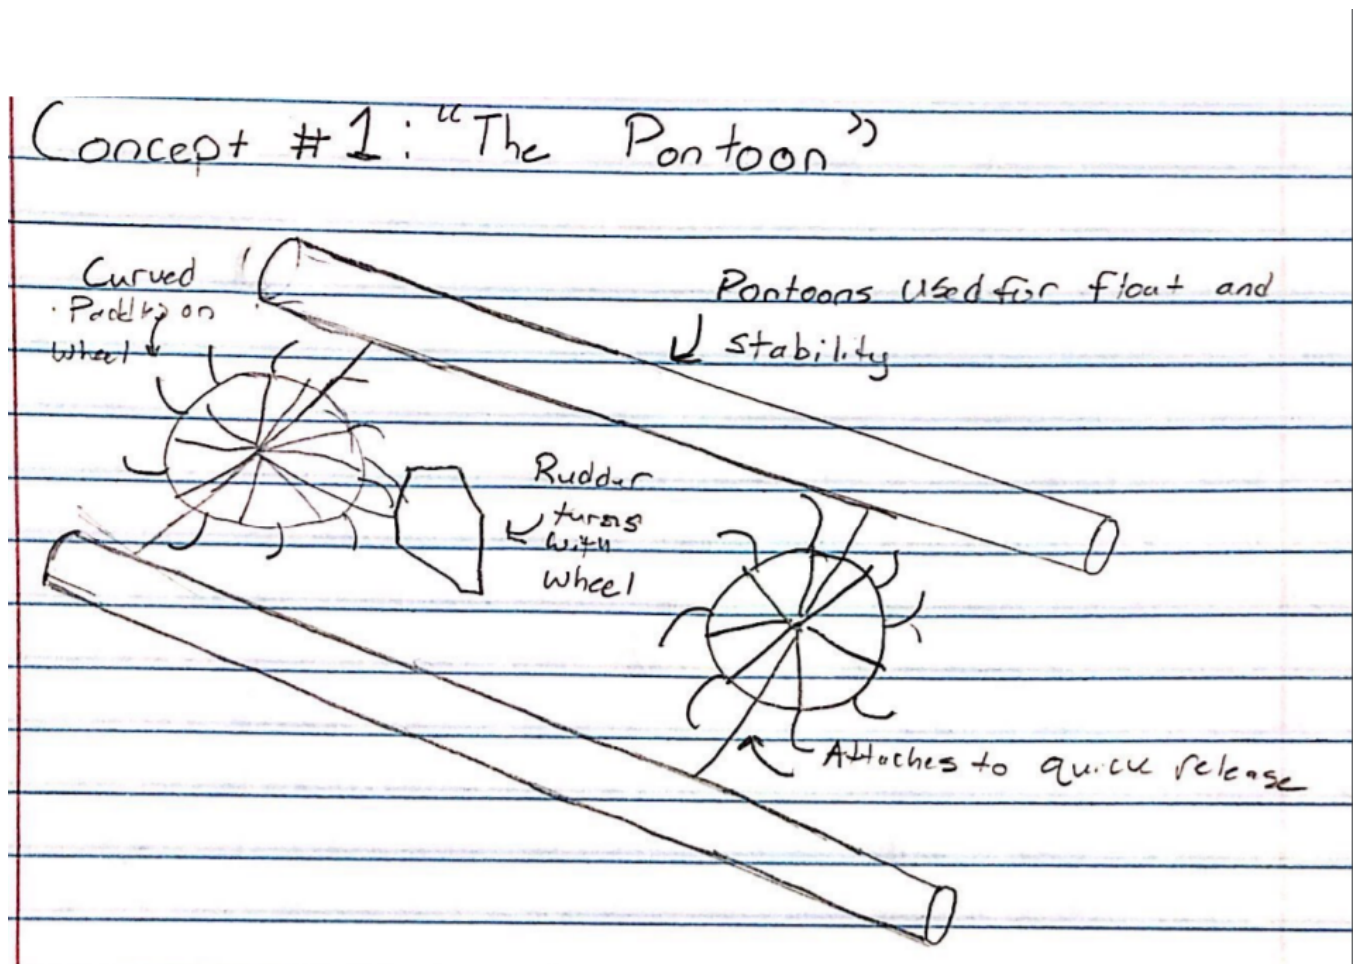 Concept #1: "The Pontoon"
Curved
Paddles on
wheel
Pontoons used for float and
stability
Rudder
turns
with
wheel
Attaches to quick release